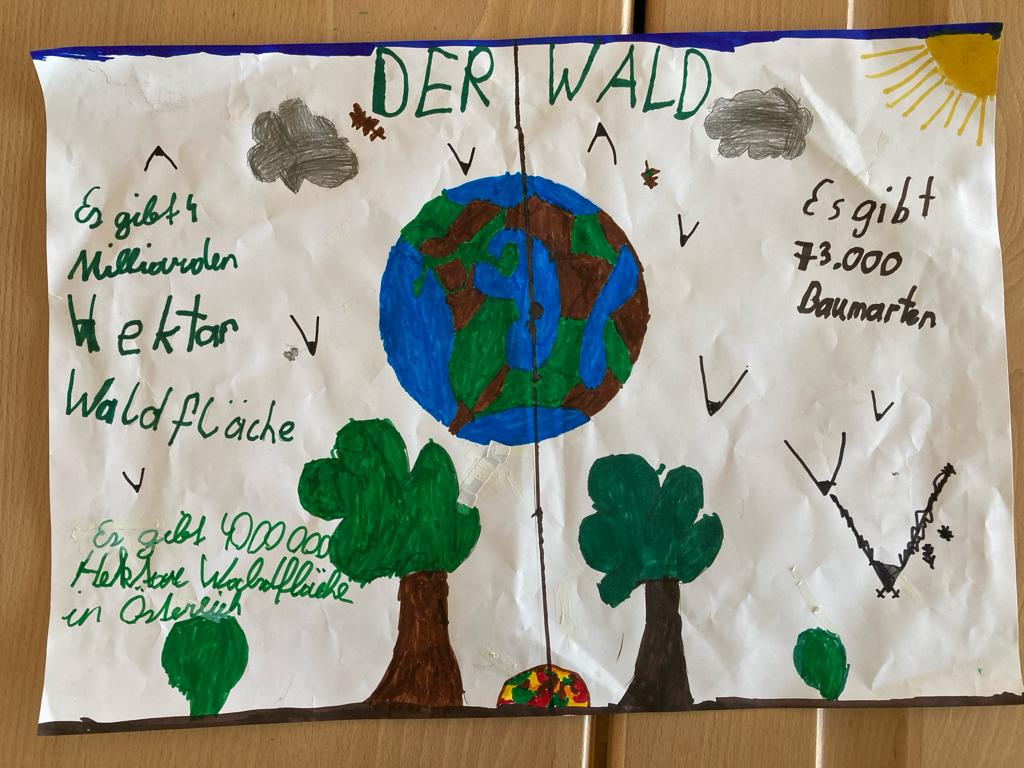 DER WALD
Es gibt 4
Milliarden
Hektar
Waldfläche
Es gibt
73.000
Baumarten
Es gibt 4000000
Hektare Waldfläche
in Österreich